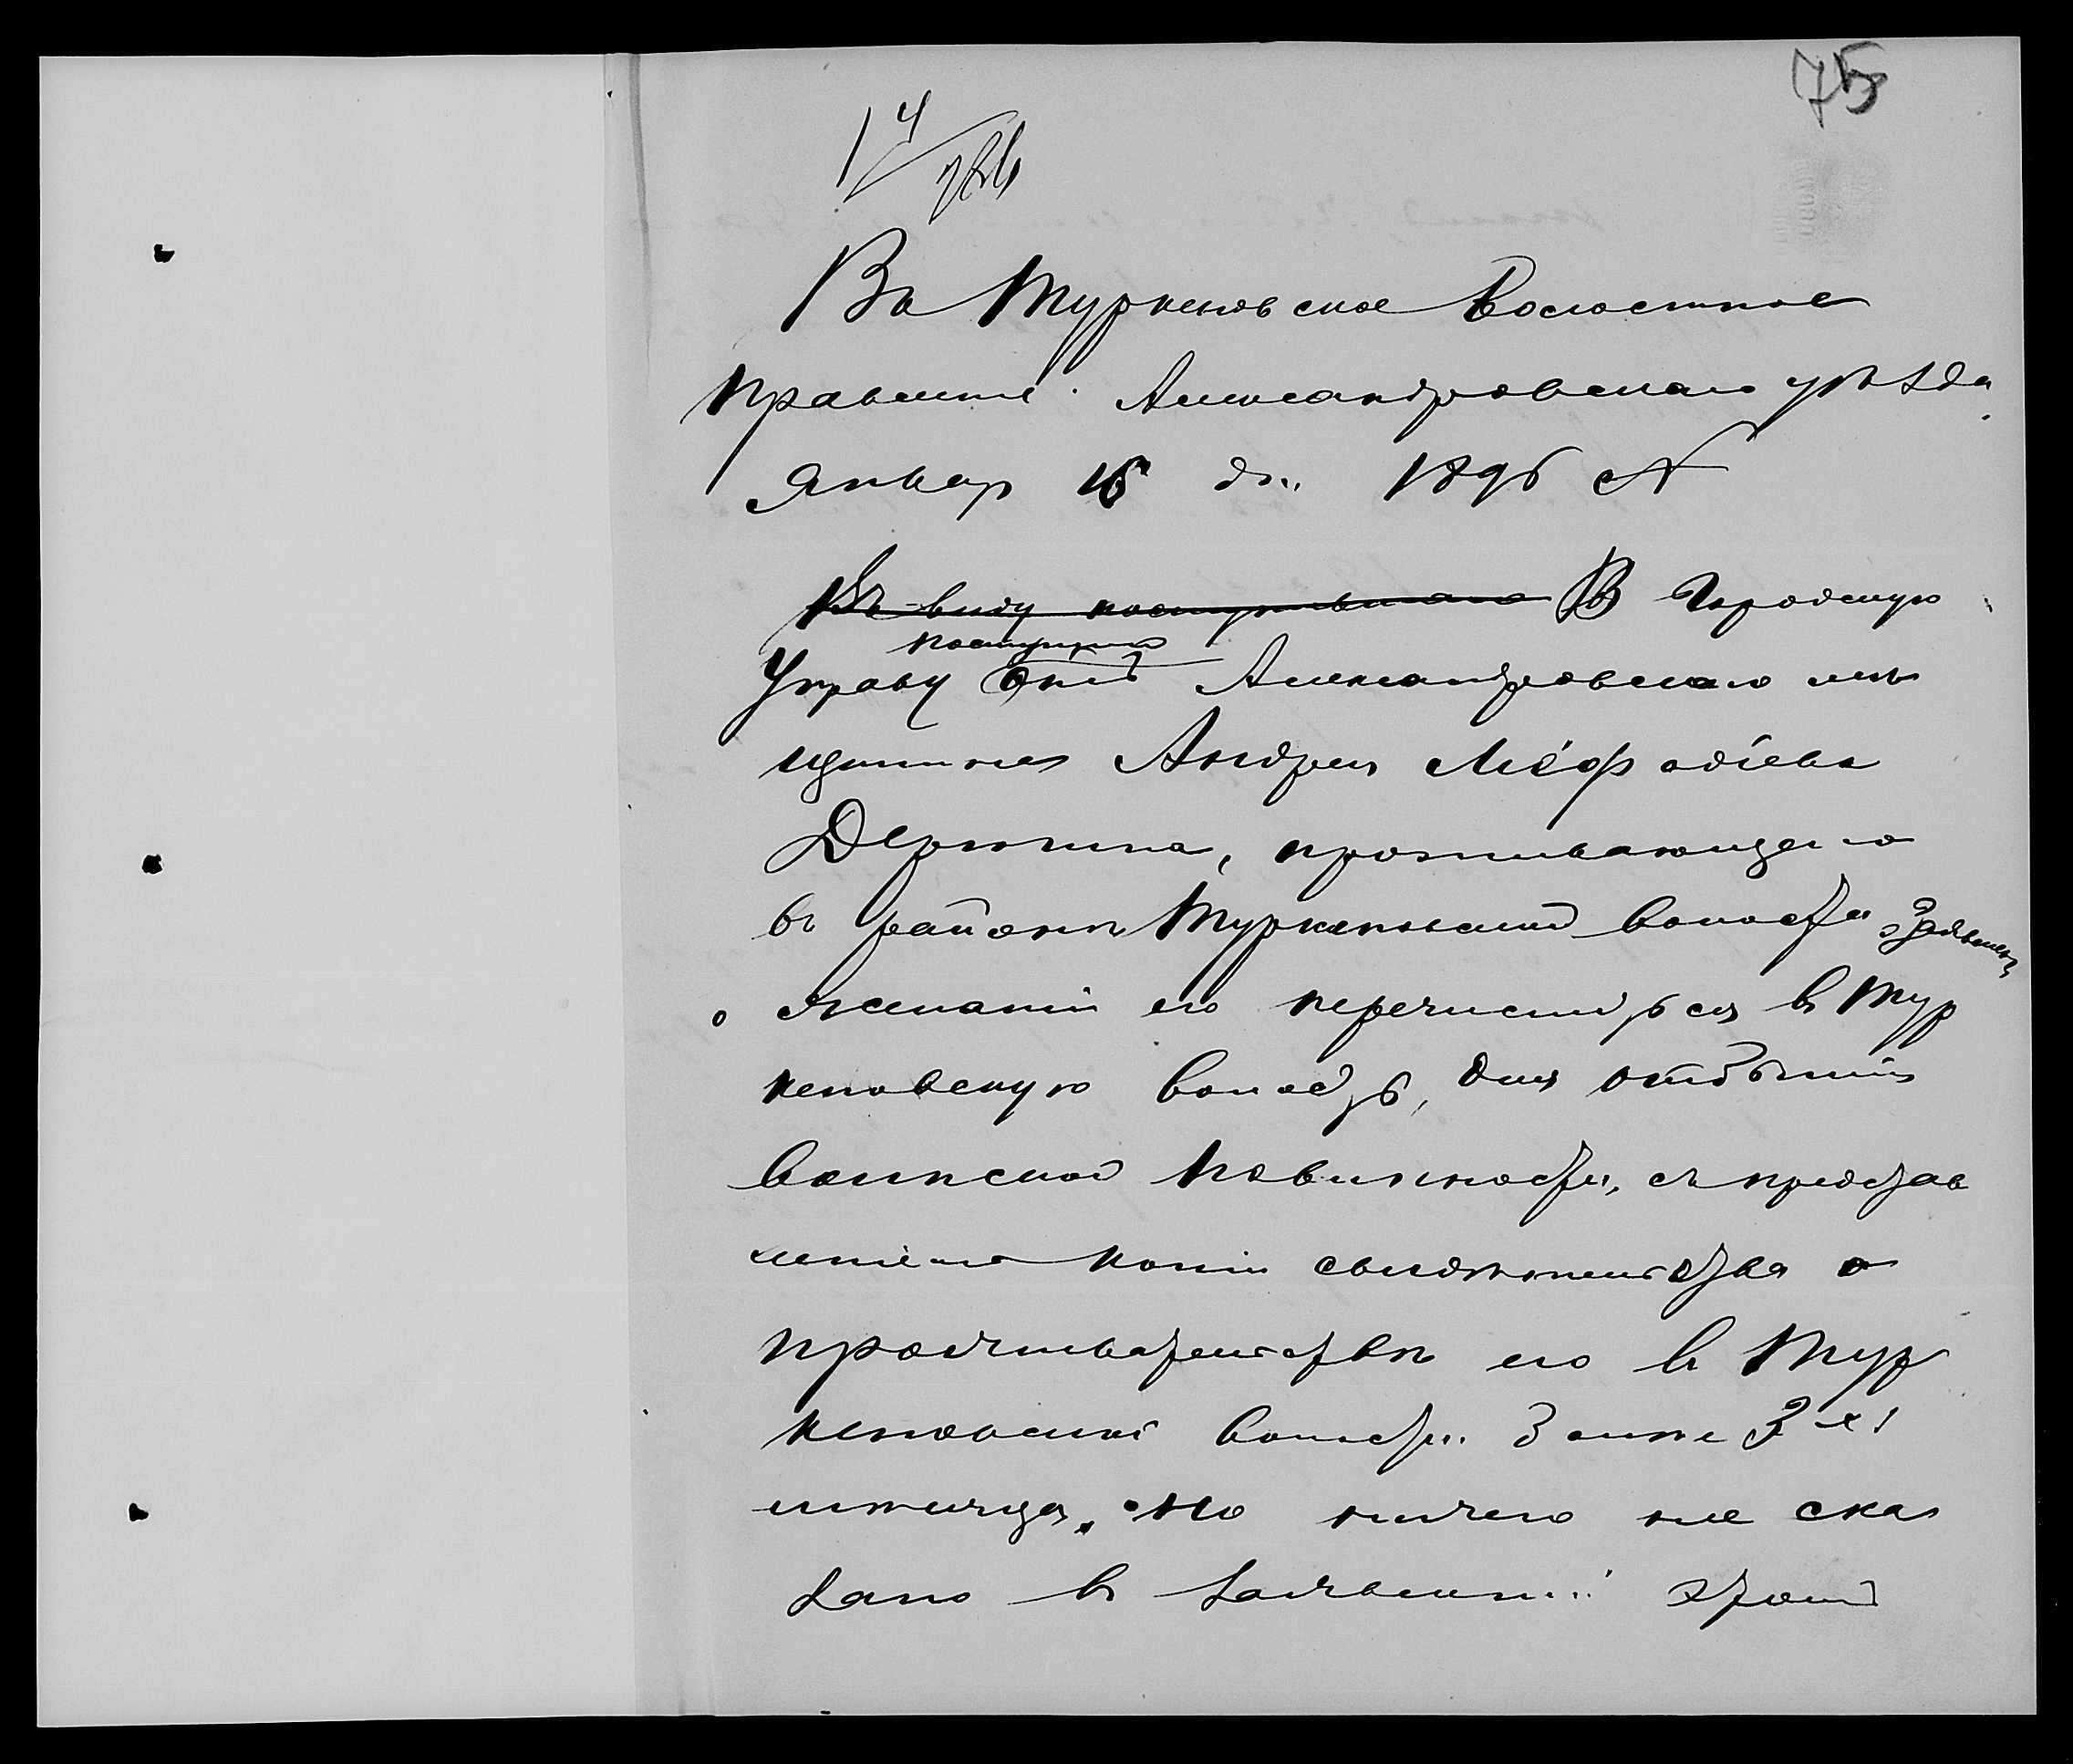 75
14
Въ Туркеновское Волостное
Правленіе Александровскаго уѣзда
Январ 15 дн. 1896 №
Въ виду поступившаго В Городскую
поступило
Управу отъ Александровскаго мѣ
щанина Андрея Меѳодіева
Дерюгина, проживающаго
въ районѣ Туркеновской волости заявленіе
о желаніи его перечислиться въ Тур
кеновскую волость, для отбытія
воинской повинности, съ представ
леніемъ копіи свидѣтельства о
проживательствѣ его въ Тур
кеновской волости болѣе 3-хъ
мѣсяцевъ. Но ничего не ска
зано въ заявленіи